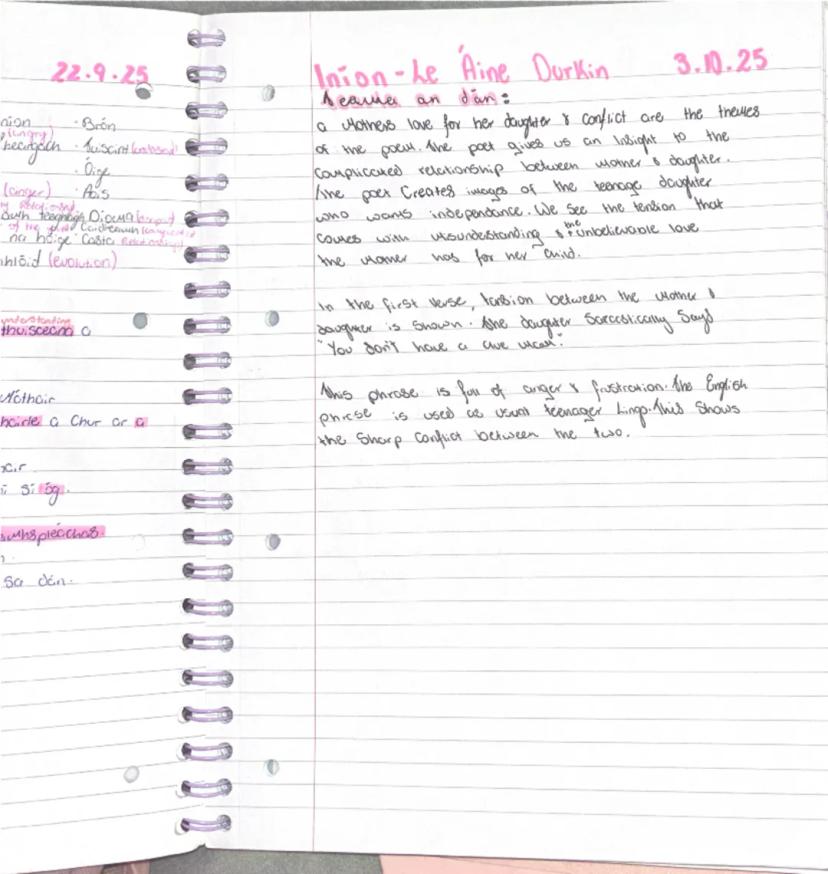 22.9.25
nion · Brón
(angry)
heargach · Tuiscint (enbased)
· Óige
(anger) · Aois
Diomá
na hóige · Casta
nhlóid (evolution)
understanding
thuisceana a
Mháthair
hairle a Chur ar a
xir.
í sí óg.
amhspleáchas.
sa dán.
Iníon - Le Áine Durkin 3.10.25
Téama an dán:
a Mothers love for her daughter & conflict are the themes
of the poem. The poet gives us an insight to the
complicated relationship between mother & daughter.
The poet Creates images of the teenage daughter
who wants independance. We see the tension that
comes with misunderstanding & the unbelievable love
the mother has for her child.
In the first verse, tension between the mother &
daughter is shown. The daughter Sarcastically Says
"You don't have a clue mam".
This phrase is full of anger & frustration. The English
phrase is used as usual teenager Lingo. This Shows
the Sharp Conflict between the two.